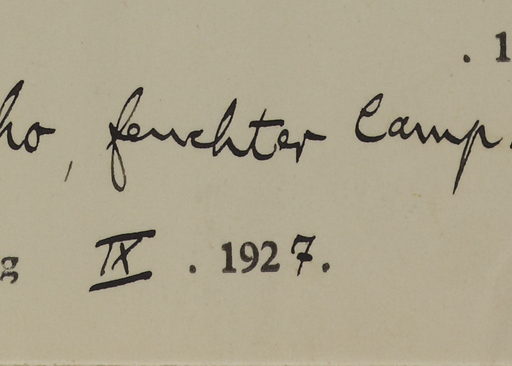 . 1
ho, feuchter Camp.
g IX . 1927.